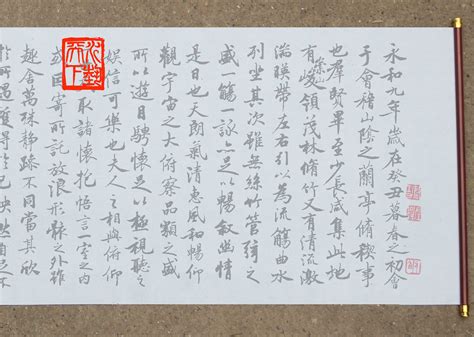 永和九年歲在癸丑暮春之初會
于會稽山陰之蘭亭脩稧事
也羣賢畢至少長咸集此地
有崇山峻領茂林脩竹又有清流激
湍暎帶左右引以為流觴曲水
列坐其次雖無絲竹管弦之
盛一觴一詠亦足以暢敘幽情
是日也天朗氣清惠風和暢仰
觀宇宙之大俯察品類之盛
所以遊目騁懷足以極視聽之
娛信可樂也夫人之相與俯仰
取諸懷抱悟言一室之內
或因寄所託放浪形骸之外雖
趣舍萬殊靜躁不同當其欣